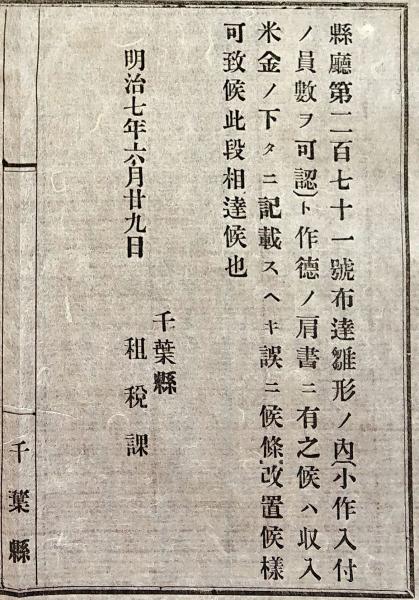 縣廳第二百七十一號布達雛形ノ內(小作入付
ノ員數ヲ可認)ト作德ノ肩書ニ有之候ハ收入
米金ノ下タニ記載スヘキ誤ニ候條改置候樣
可致候此段相達候也
明治七年六月廿九日
千葉縣
租稅課
千葉縣